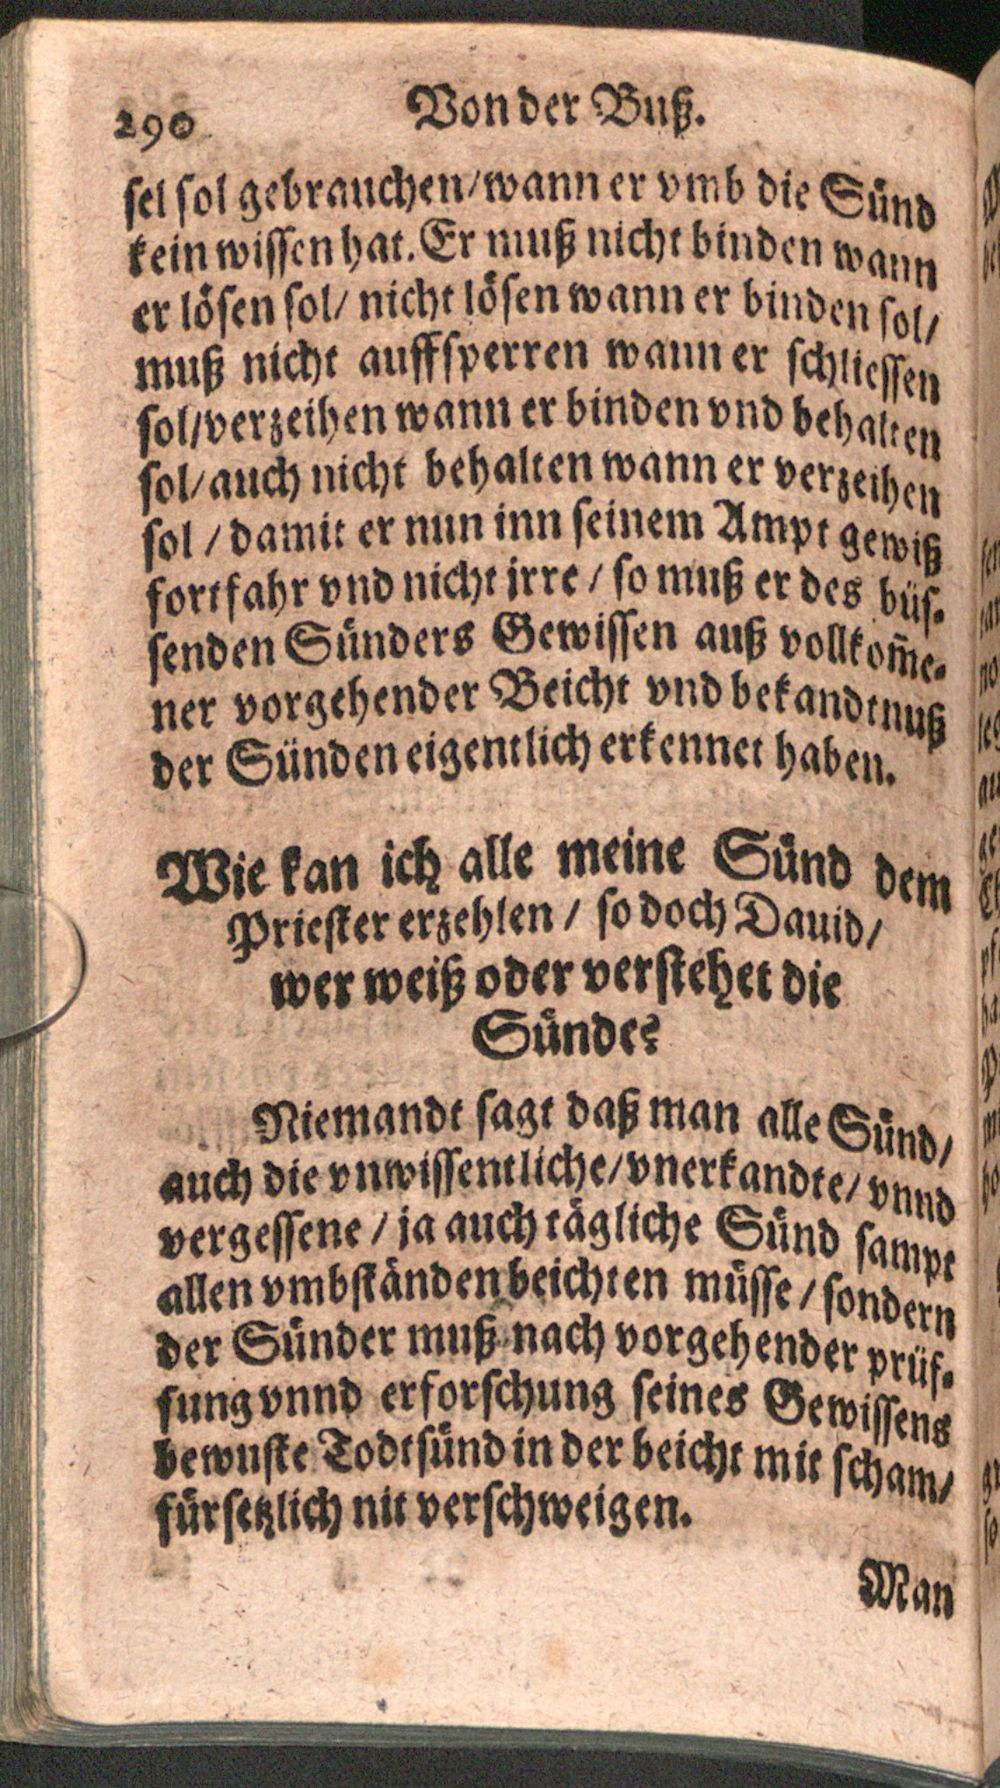 290 Von der Buß.
sel sol gebrauchen/wann er vmb die Sünd
kein wissen hat. Er muß nicht binden wann
er lösen sol/ nicht lösen wann er binden sol/
muß nicht auffsperren wann er schliessen
sol/verzeihen wann er binden vnd behalten
sol/auch nicht behalten wann er verzeihen
sol / damit er nun inn seinem Ampt gewiß
fortfahr vnd nicht jrre / so muß er des büs-
senden Sünders Gewissen auß vollkom̃e-
ner vorgehender Beicht vnd bekandtnuß
der Sünden eigentlich erkennet haben.
Wie kan ich alle meine Sünd dem
Priester erzehlen / so doch Dauid/
wer weiß oder verstehet die
Sünde?
Niemandt sagt daß man alle Sünd/
auch die vnwissentliche/vnerkandte/ vnnd
vergessene / ja auch tägliche Sünd sampt
allen vmbständen beichten müsse / sondern
der Sünder muß nach vorgehender prüf-
fung vnnd erforschung seines Gewissens
bewuste Todtsünd in der beicht mit scham/
fürsetzlich nit verschweigen.
Man